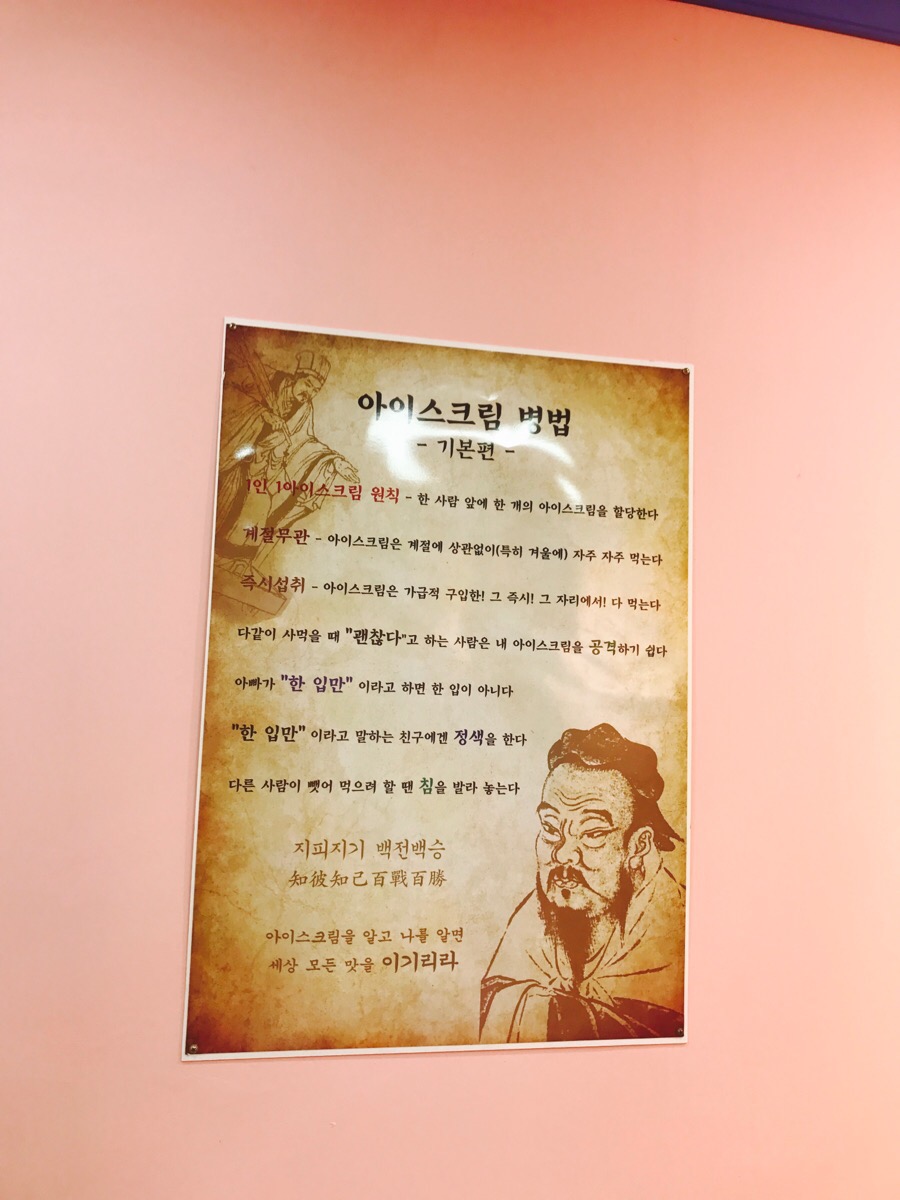 아이스크림 병법
- 기본편 -
1인 1아이스크림 원칙 - 한 사람 앞에 한 개의 아이스크림을 할당한다
계절무관 - 아이스크림은 계절에 상관없이(특히 겨울에) 자주 자주 먹는다
즉시섭취 - 아이스크림은 가급적 구입한! 그 즉시! 그 자리에서! 다 먹는다
다같이 사먹을 때 "괜찮다"고 하는 사람은 내 아이스크림을 공격하기 쉽다
아빠가 "한 입만" 이라고 하면 한 입이 아니다
"한 입만" 이라고 말하는 친구에겐 정색을 한다
다른 사람이 뺏어 먹으려 할 땐 침을 발라 놓는다
지피지기 백전백승
知彼知己百戰百勝
아이스크림을 알고 나를 알면
세상 모든 맛을 이기리라